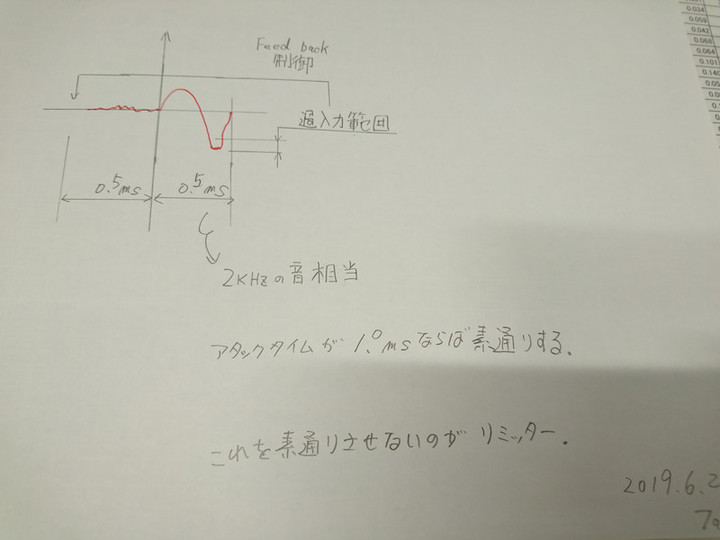 Feed back
制御
過入力範囲
0.5ms
0.5ms
2KHzの音相当
アタックタイムが1.0msならば素通りする。
これを素通りさせないのがリミッター.
2019.6.2
0.034
0.059
0.042
0.068
0.064
0.101